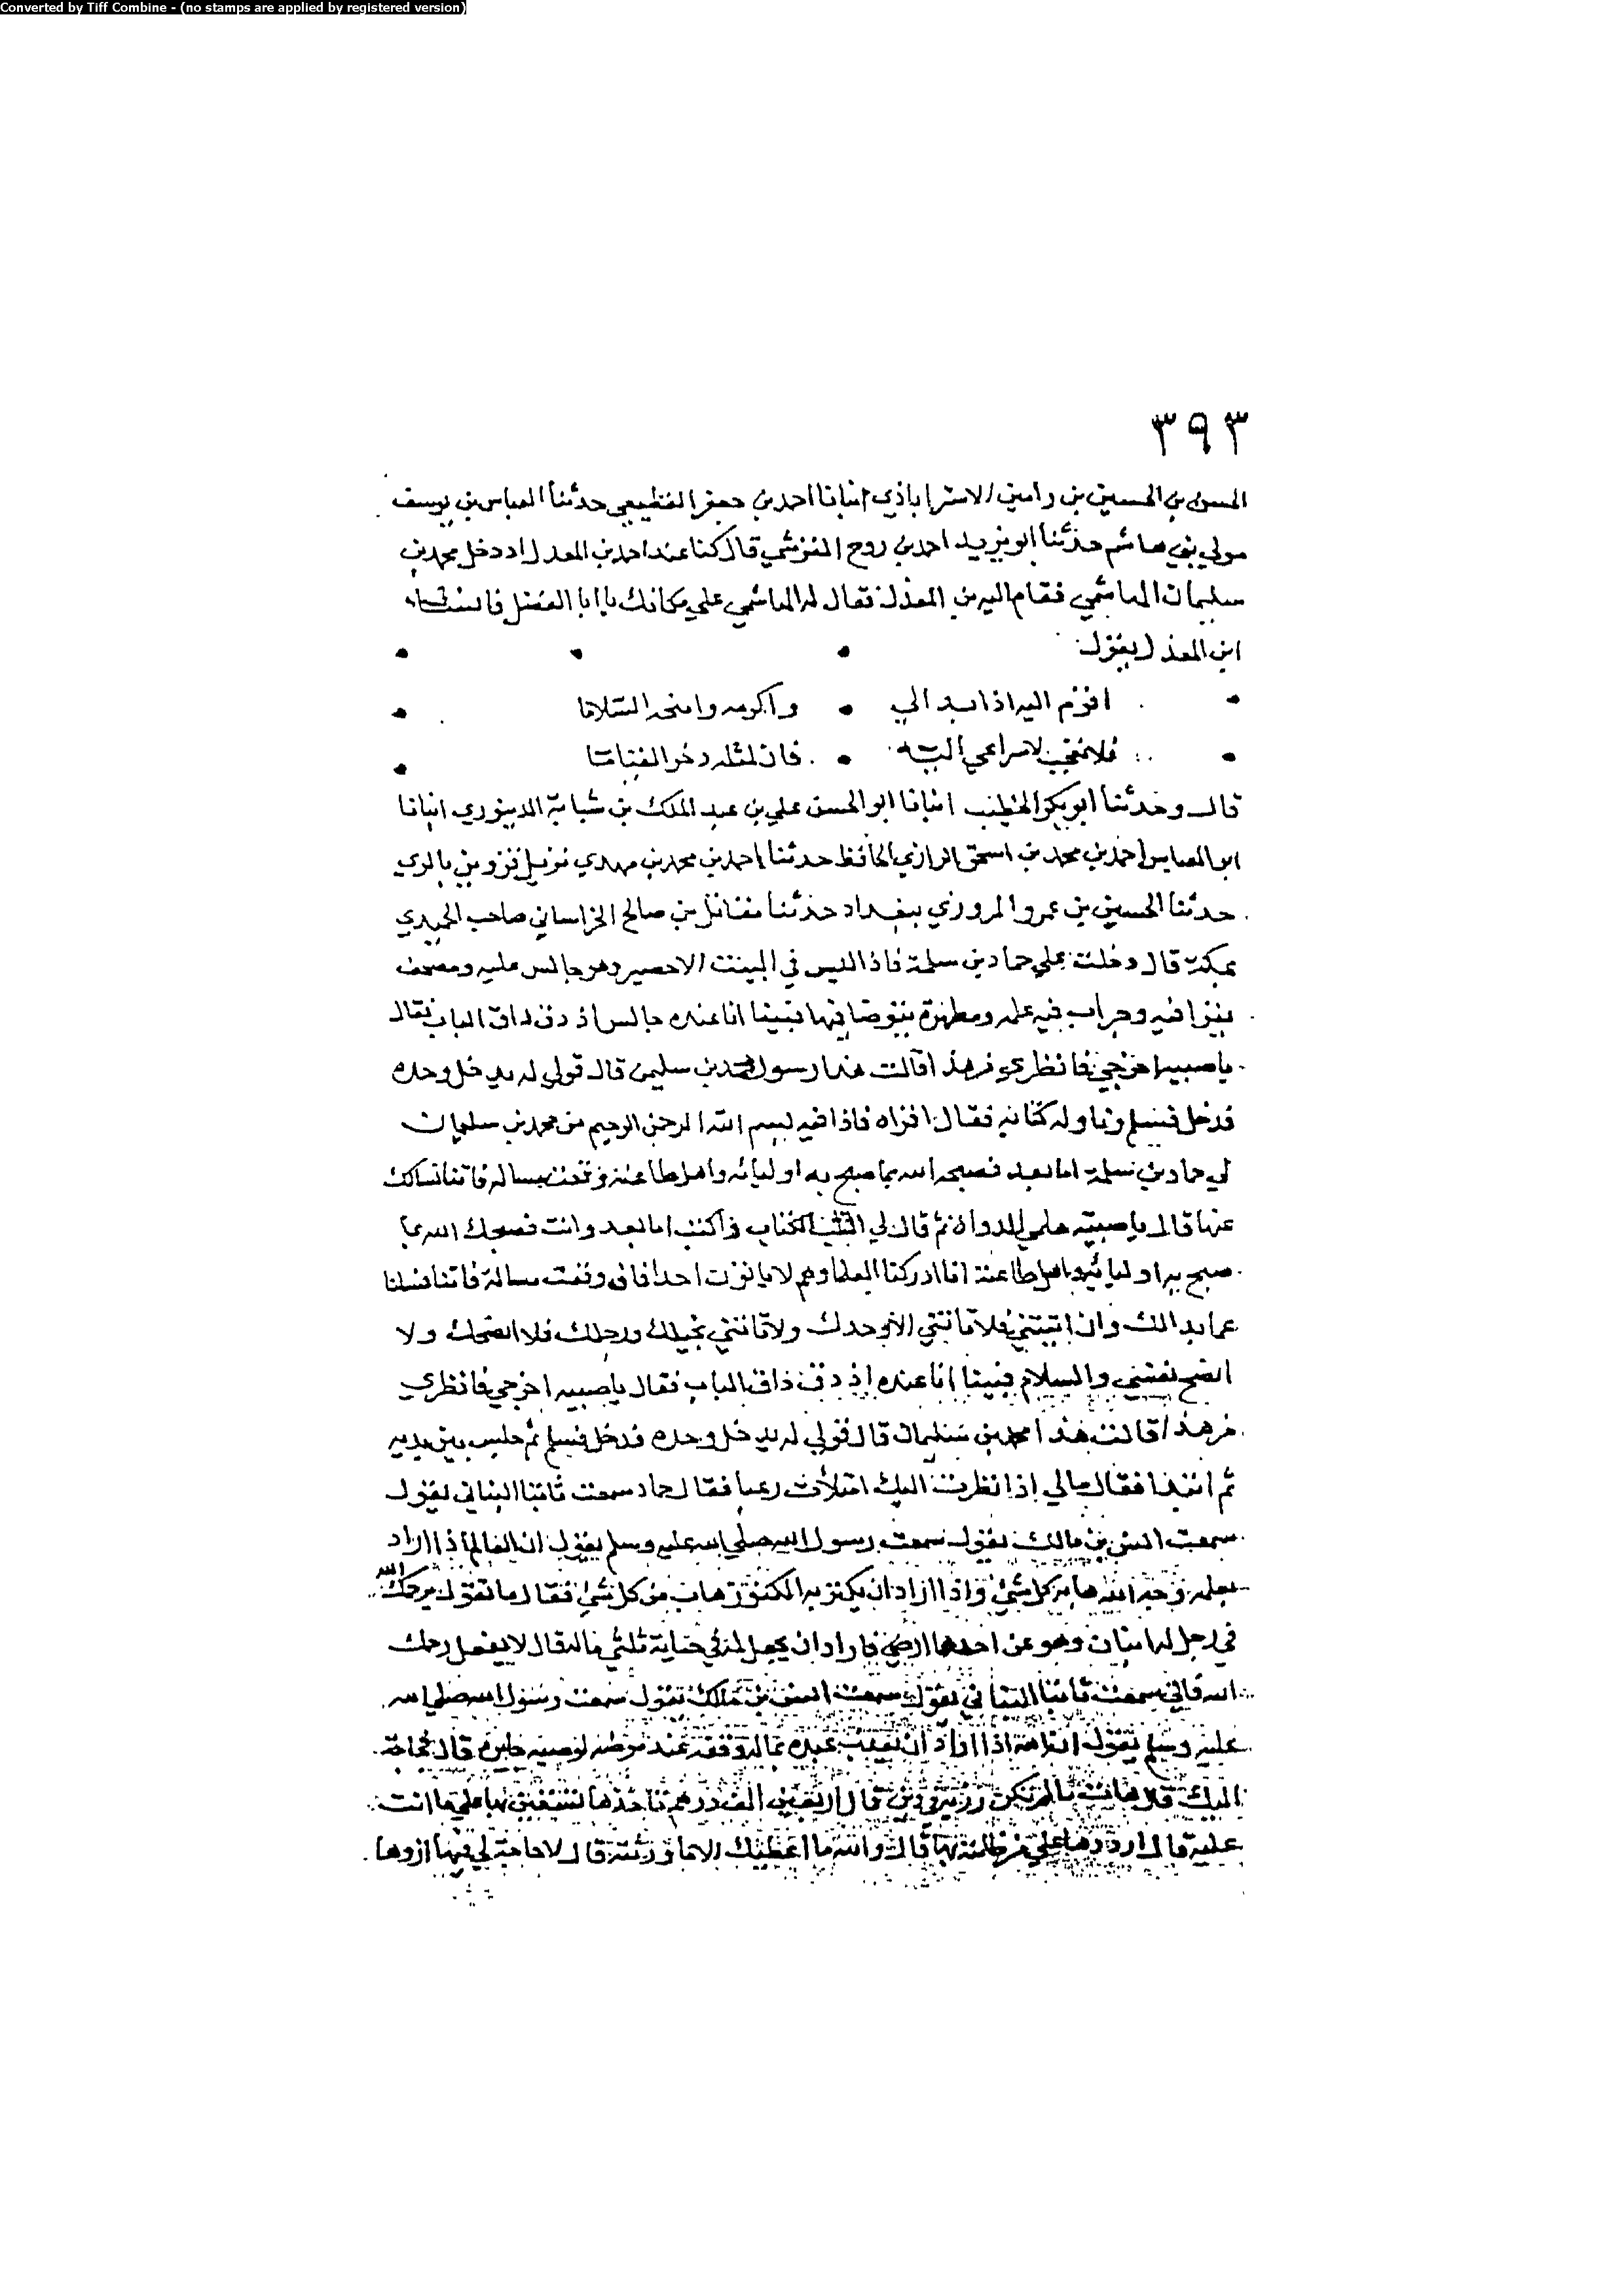 Converted by Tiff Combine - (no stamps are applied by registered version)
٣٩٣
الحسن بن الحسين بن رامين الاستراباذي انبانا احمد بن جعفر القطيعي حدثنا العباس بن يوسف
مولي بني هاشم حدثنا ابو يزيد احمد بن روح القرشي قال كنا عند احمد بن المعدل اذ دخل محمد بن
سليمان الهاشمي فقام اليه بن المعذل فقال له الهاشمي علي مكانك يا ابا الفضل فانشاء
ابن المعذل يقول
اقوم اليه اذا بدا لي • واكرمه وامنحه السلاما
فلا تعجب لاسراعي اليه • فان لمثله دخر القياما
قال وحدثنا ابو بكر الخطيب انبانا ابو الحسن علي بن عبد الملك بن شبابة الدينوري انبانا
ابو العباس احمد بن محمد بن اسحق الرازي الحافظ حدثنا احمد بن محمد بن مهدي نزيل قزوين بالري
حدثنا الحسين بن عمرو المروزي ببغداد حدثنا مقاتل بن صالح الخراساني صاحب الحميدي
بمكة قال دخلت علي حماد بن سلمة فاذا ليس في البيت الا حصير وهو جالس عليه ومصحف
يقرا فيه وجراب فيه علمه ومطهرة يتوضا فيها فبينا انا عنده جالس اذ دق داق الباب فقال
يا صبيه اخرجي فانظري من هذا قالت هذا رسول محمد بن سليمن قال قولي له يدخل وحده
فدخل فسلم وناوله كتابه فقال اقراه فاذا فيه بسم الله الرحمن الرحيم من محمد بن سليمان
الي حماد بن سلمة اما بعد فصبحه الله بما صبح به اوليائه واهل طاعته وقعت مساله فاتنا نسالك
عنها قال يا صبيه هلمي الدواه ثم قال لي اقلب الكتاب واكتب اما بعد وانت فصبحك الله بما
صبح به اوليائه واهل طاعته انا ادركنا العلما وهم لا ياتون احدا فان وقعت مسالة فاتنا فسلنا
عما بدا لك وان اتيتني فلا تاتني الا وحدك ولا تاتني بخيلك ورجلك فلا انصحك ولا
انصح نفسي والسلام فبينا انا عنده اذ دق داق الباب فقال يا صبيه اخرجي فانظري
من هذا قالت هذا محمد بن سليمان قال قولي له يدخل وحده فدخل فسلم ثم جلس بين يديه
ثم ابتدا فقال مالي اذا نظرت اليك امتلأت رعبا فقال حماد سمعت ثابتا البناني يقول
سمعت انس بن مالك يقول سمعت رسول الله صلي الله عليه وسلم يقول ان العالم اذا اراد
بعلمه وجه الله هابه كل شيئ واذا اراد ان يكنز به الكنوز هاب من كل شيئ فقال ما تقول يرحمك الله
في رجل له ابنان وهو عن احدهما ارضي فاراد ان يجعل له في حياته ثلثي ماله قال لا يفعل رحمك
الله فاني سمعت ثابتا البناني يقول سمعت انس بن مالك يقول سمعت رسول الله صلي الله
عليه وسلم يقول ان الله اذا اراد ان يعذب عبده بماله وفقه عند موته لوصيه جايره قال فحاجة
اليك قال هات ما لم تكن رزية في دين قال اربعين الف درهم تاخذها تستعين بها علي ما انت
عليه قال ارددها علي من ظلمته بها قال والله ما اعطيك الا ما ورثته قال لا حاجة لي فيها ازوها